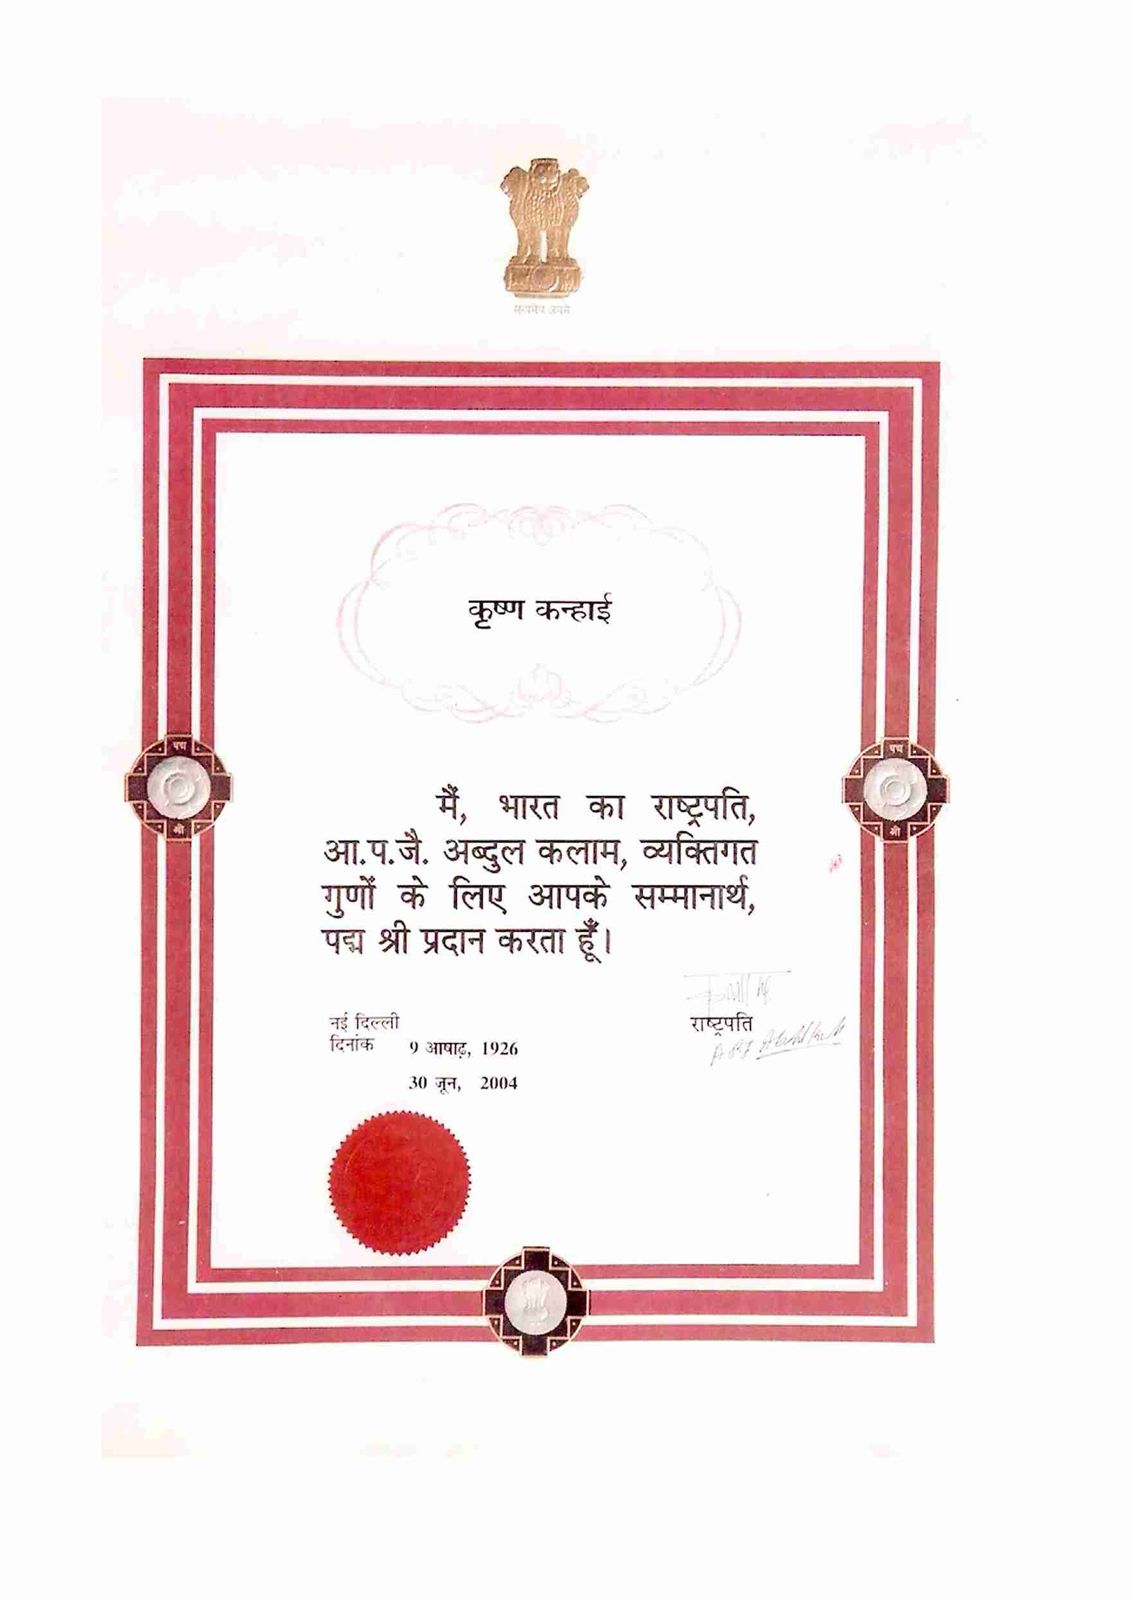 सत्यमेव जयते
कृष्ण कन्हाई
पद्म
पद्म
श्री
श्री
मैं, भारत का राष्ट्रपति,
आ.प.जै. अब्दुल कलाम, व्यक्तिगत
गुणों के लिए आपके सम्मानार्थ,
पद्म श्री प्रदान करता हूँ।
नई दिल्ली
राष्ट्रपति
दिनांक 9 आषाढ़, 1926
30 जून, 2004